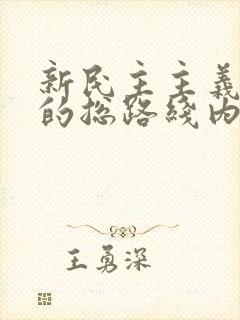 新民主主義
的总路綫内
王勇深